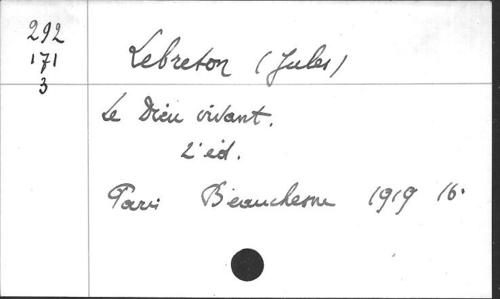 292
171
3
Lebreton (Jules)
Le Dieu vivant.
2e éd.
Paris Beauchesne 1919 16°